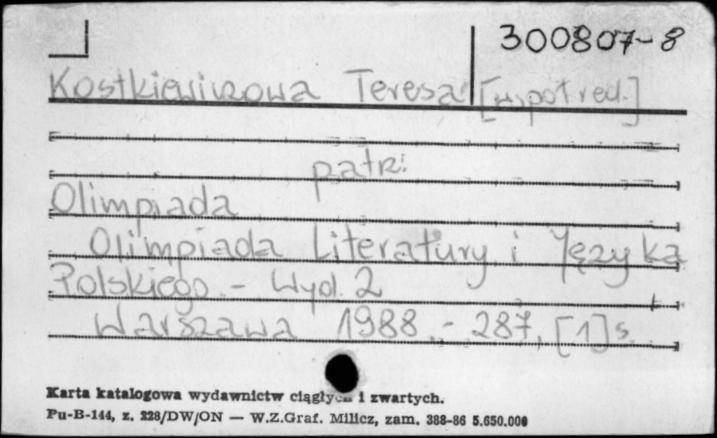 300807-8
Kostkiewiczowa Teresa [współred.]
patrz:
Olimpiada
Olimpiada Literatury i Języka
Polskiego. - Wyd. 2
Warszawa 1988. - 287, [1] s.
Karta katalogowa wydawnictw ciągłych i zwartych.
Pu-B-144, z. 228/DW/ON — W.Z.Graf. Milicz, zam. 388-86 5.650.000